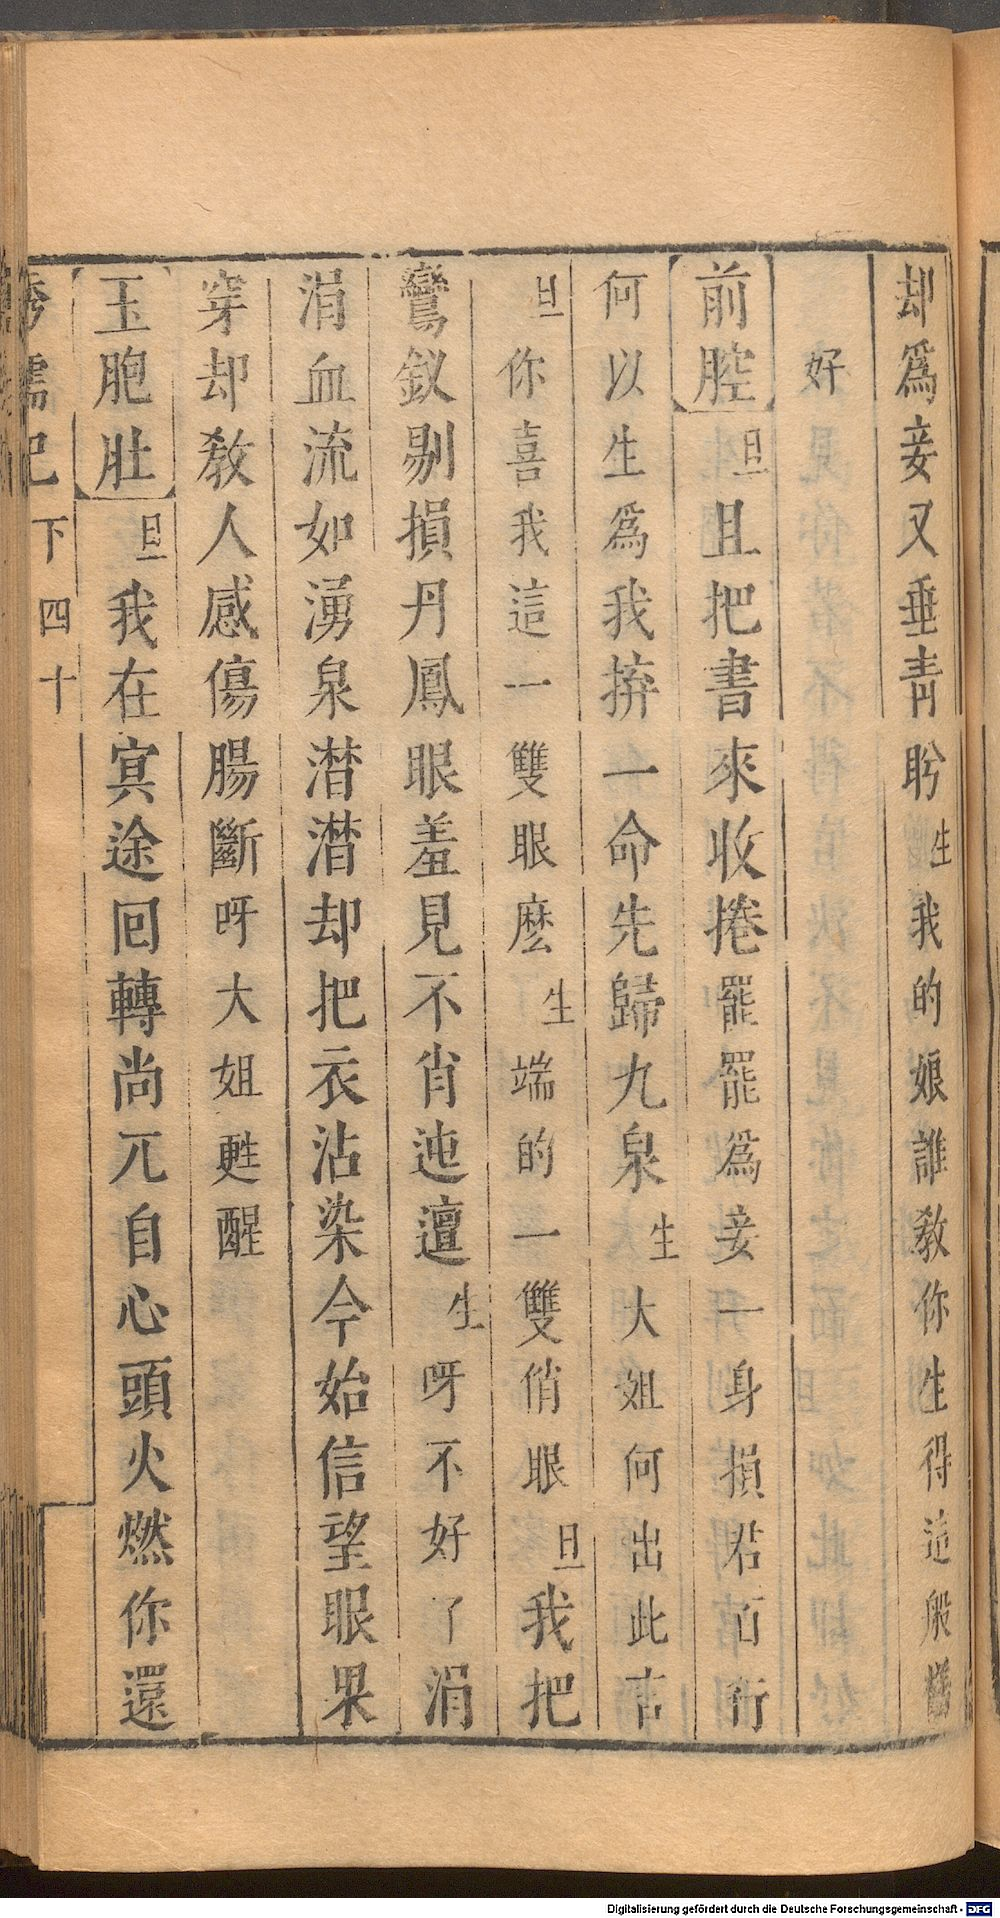 却爲妾又垂青盻生我的娘誰敎你生得這般
好
前腔旦且把書來收捲罷罷爲妾一身損君百行
何以生爲我拚一命先歸九泉生大姐何出此言
旦你喜我這一雙眼麽生端的一雙俏眼旦我把
鸞釵剔損丹鳳眼羞見不肖迍邅生呀不好了涓
涓血流如湧泉潸潸却把衣沾染今始信望眼果
穿却敎人感傷腸斷呀大姐甦醒
玉胞肚旦我在冥途回轉尚兀自心頭火燃你還
繡襦記 下 四十
Digitalisierung gefördert durch die Deutsche Forschungsgemeinschaft - DFG